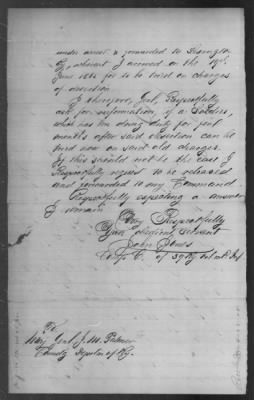 under arrest & forwarded to Lexington
Ky, whereat I arrived on the 19th
June 1865 for to be tried on charges
of desertion
I therefore, Genl, Respectfully
ask for information, if a Soldier,
which has been doing duty for
months after said desertion can be
tried now on said old charges.
If this should not be the case I
Respectfully request to be released
and forwarded to my Command
Respectfully expecting a answer
I remain
Very Respectfully
Your obedient servant
John
Comp. C. of 39 Ky
To
Maj Genl J. M. Palmer
Comdg Ky.